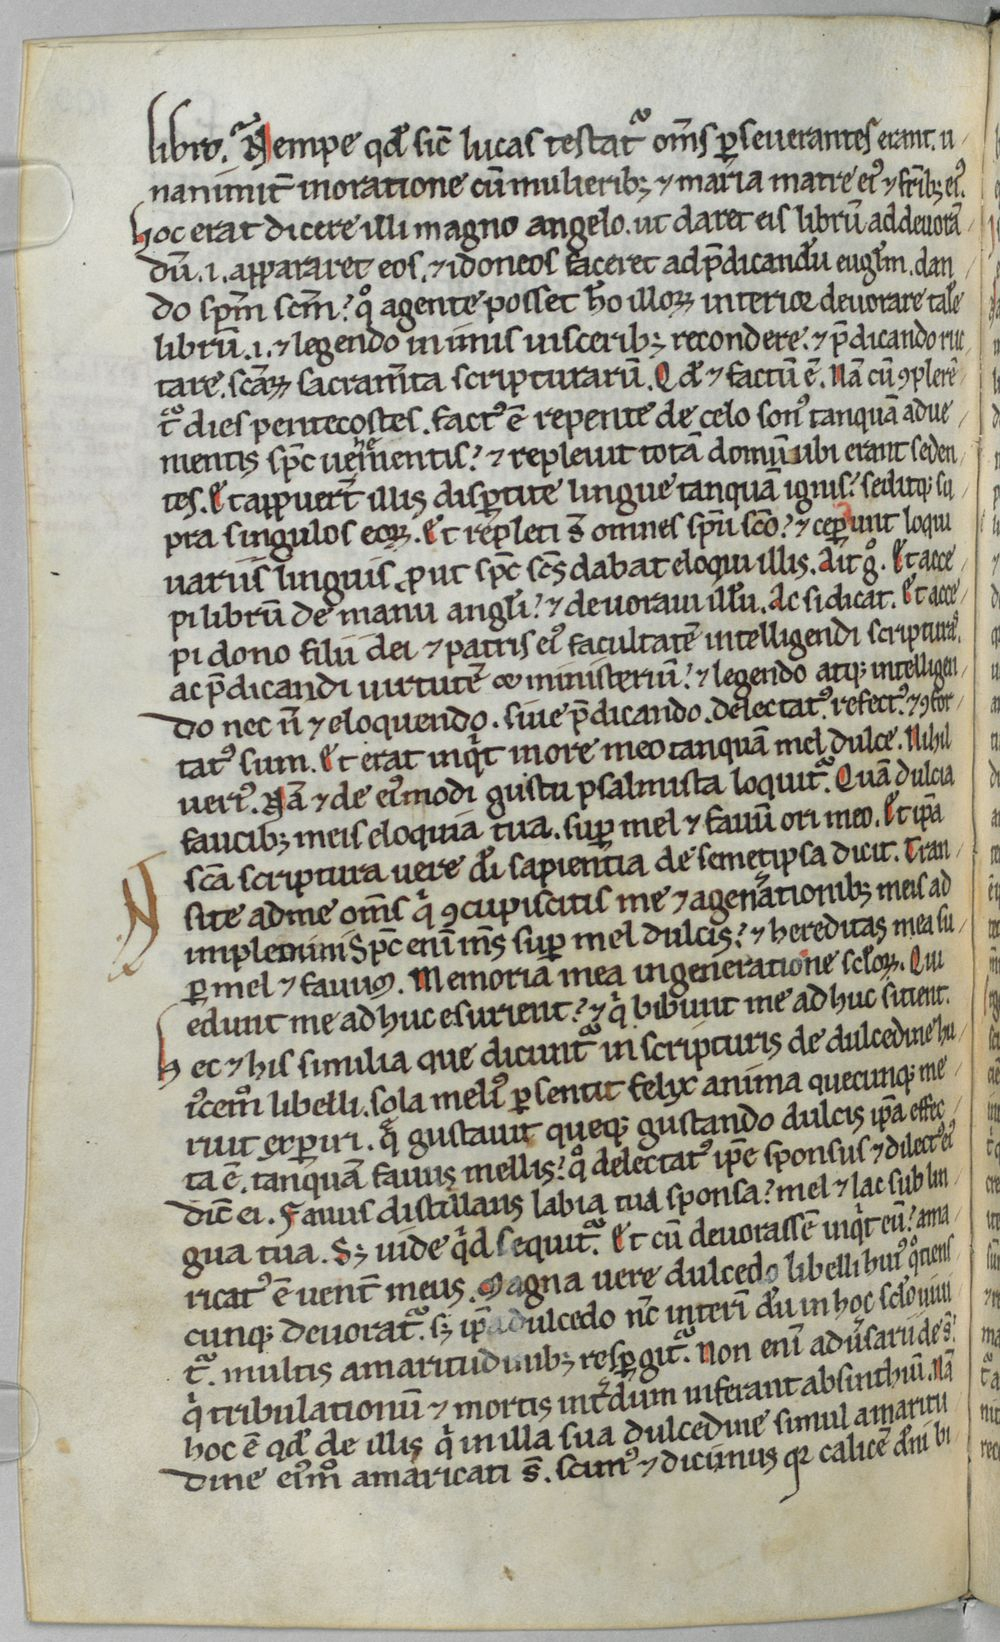 libro. Nempe qđ sic̄ lucas testat᷑ om̄s ꝑseuerantes erant. u
nanimit̄ in oratione cū mulieribꝫ ⁊ maria matre ei᷒ ⁊ fr̄ibꝫ ei᷒.
hoc erat dicere illi magno angelo. ut daret eis librū ad deuorā
dū .i. appararet eos. ⁊ idoneos faceret ad p̄dicandū eugl̄m. dan
do sp̄m sc̄m? qͦ agente posset hō illoꝝ interior deuorare tale
librū .i. ⁊ legendo in imis uisceribꝫ recondere. ⁊ p̄dicando ruc
tare. sc̄aꝝ sacram̄ta scripturarū. Qđ ⁊ factū ē. Nā cū ꝯplerē
t᷑ dies pentecostes. fact᷒ ē repente de celo son᷒ tanquā adue
nientis sp̄c uehementis? ⁊ repleuit totā domū ubi erant seden
tes. Et appuert̄ illis disꝑtite lingue tanquā ignis? seditqꝫ su
pra singulos eoꝝ. Et repleti s̄ omnes sp̄u sc̄o? ⁊ ceꝑunt loqui
uariis linguis ꝓut sp̄c sc̄s dabat eloqui illis. Ait gͦ. Et acce
pi librū de manu angl̄i? ⁊ deuoraui illū. Ac si dicat. Et acce
pi dono filii dei ⁊ patris ei᷒ facultatē intelligendi scripturas.
ac p̄dicandi uirtutē ac ministeriū? ⁊ legendo atqꝫ intelligen
do nec n̄ ⁊ eloquendo. siue p̄dicando. delectat᷒. refect᷒. ⁊ ꝯfor
tat᷒ sum. Et erat inqͥt in ore meo tanquā mel dulce. Nihil
ueri᷒. Nā ⁊ de ei᷒modi gustu psalmista loquit᷑. Quā dulcia
faucibꝫ meis eloquia tua. suꝑ mel ⁊ fauū ori meo. Et ip̄a
sc̄a scriptura uere dī sapientia de semetipsa dicit. Tran
site ad me om̄s qͥ ꝯcupiscitis me ⁊ a generationibꝫ meis ad
implemini Sp̄c enī m̄s suꝑ mel dulcis? ⁊ hereditas mea su
ꝑ mel ⁊ fauuꝯ. Memoria mea in generatione scl̄oꝝ. Qui
edunt me adhuc esurient? ⁊ qͥ bibunt me adhuc sitient.
hec ⁊ his similia que dicunt᷑ in scripturis de dulcedine hu
i᷒cem̄ libelli. sola meli᷒ ꝑsentit felix anima quecunqꝫ me
ruit exꝑiri. qͣ gustauit queqꝫ gustando dulcis ip̄a effec
ta ē. tanquā fauus mellis? qͦ delectat᷒ ip̄e sponsus ⁊ dilect᷒ ei᷒
dic̄ ei. Fauus distillans labia tua sponsa? mel ⁊ lac sub lin
gua tua. Sꝫ uide qͥd sequit᷑. Et cū deuorassē inqͥt eū? ama
ricat᷒ ē uent̄ meus. Magna uere dulcedo libelli hui᷒ qͦtiens
cunqꝫ deuorat᷑. sꝫ ip̄a dulcedo nc̄ interī dū in hoc scl̄o uiui
t᷑. multis amaritudinibꝫ resꝑgit᷑. Non enī adu̾sarii de s̄?
qͥ tribulationū ⁊ mortis int̾dum inferant absinthiū. Nā
hoc ē qđ de illis qͥ in illa sua dulcedine simul amaritu
dine ei᷒mͦ amaricati s̄. scim᷒ ⁊ dicimus qꝛ calicē dn̄i bi